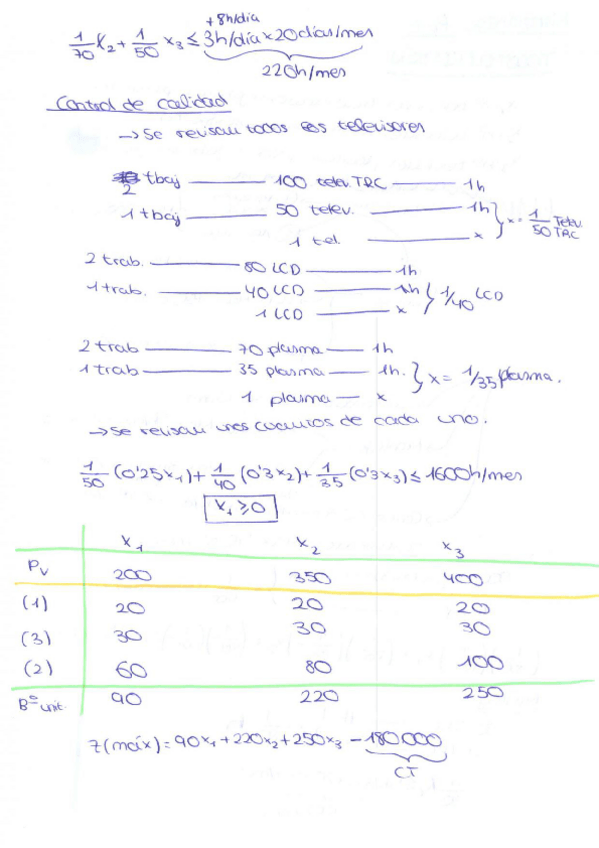 +8h/día
1/70 x₂ + 1/50 x₃ ≤ 3h/día × 20 días/mes
220h/mes
Control de calidad
→ Se revisan todos los televisores
2 tbaj — 100 telev. TRC — 1h
1 tbaj — 50 telev. — 1h
1 tel — x
x = 1/50 Telev. TRC
2 trab. — 80 LCD — 1h
1 trab. — 40 LCD — 1h
1 LCD — x
1/40 LCD
2 trab — 70 plasma — 1h
1 trab — 35 plasma — 1h.
1 plasma — x
x = 1/35 plasma.
→ Se revisan unos cuantos de cada uno.
1/50 (0'25x₁) + 1/40 (0'3x₂) + 1/35 (0'3x₃) ≤ 1600h/mes
x₁ ≥ 0
x₁ x₂ x₃
Pv 200 350 400
(1) 20 20 20
(3) 30 30 30
(2) 60 80 100
Bº unit. 90 220 250
Z(máx) = 90x₁ + 220x₂ + 250x₃ − 180.000
CT